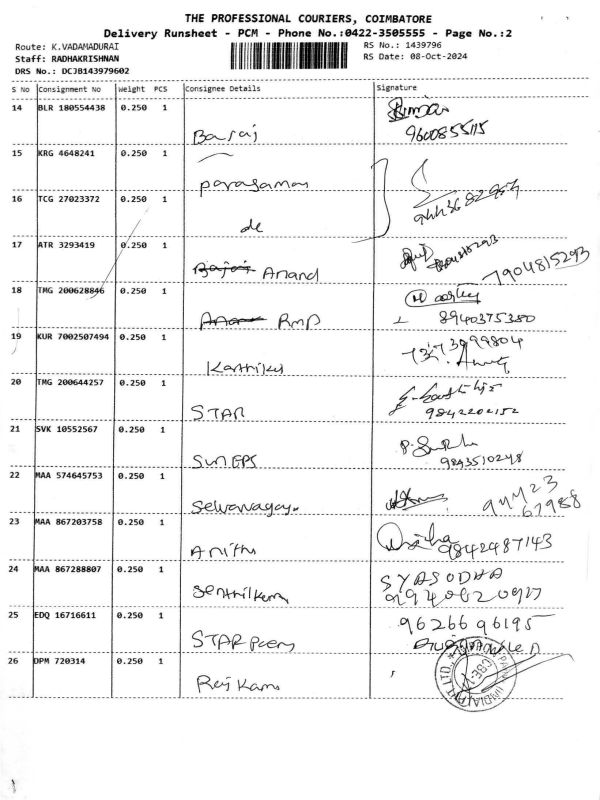 THE PROFESSIONAL COURIERS, COIMBATORE
Delivery Runsheet - PCM - Phone No.:0422-3505555 - Page No.:2
Route: K.VADAMADURAI
RS No.: 1439796
Staff: RADHAKRISHNAN
RS Date: 08-Oct-2024
DRS No.: DCJB143979602
S No Consignment No Weight PCS Consignee Details Signature
14 BLR 180554438 0.250 1
Balaj
9600855115
15 KRG 4648241 0.250 1
16 TCG 27023372 0.250 1
de
17 ATR 3293419 0.250 1
Anand
7904815293
18 TMG 200628846 0.250 1
RMP
8940375380
19 KUR 7002507494 0.250 1
7373999804
20 TMG 200644257 0.250 1
STAR
9842202152
21 SVK 10552567 0.250 1
SUN EPS
9843510248
22 MAA 574645753 0.250 1
94423
67988
23 MAA 867203758 0.250 1
Anithu
9842487143
24 MAA 867288807 0.250 1
Senthilkum
SYASODHA
25 EDQ 16716611 0.250 1
9626696195
STAR
26 DPM 720314 0.250 1
Raj Kam